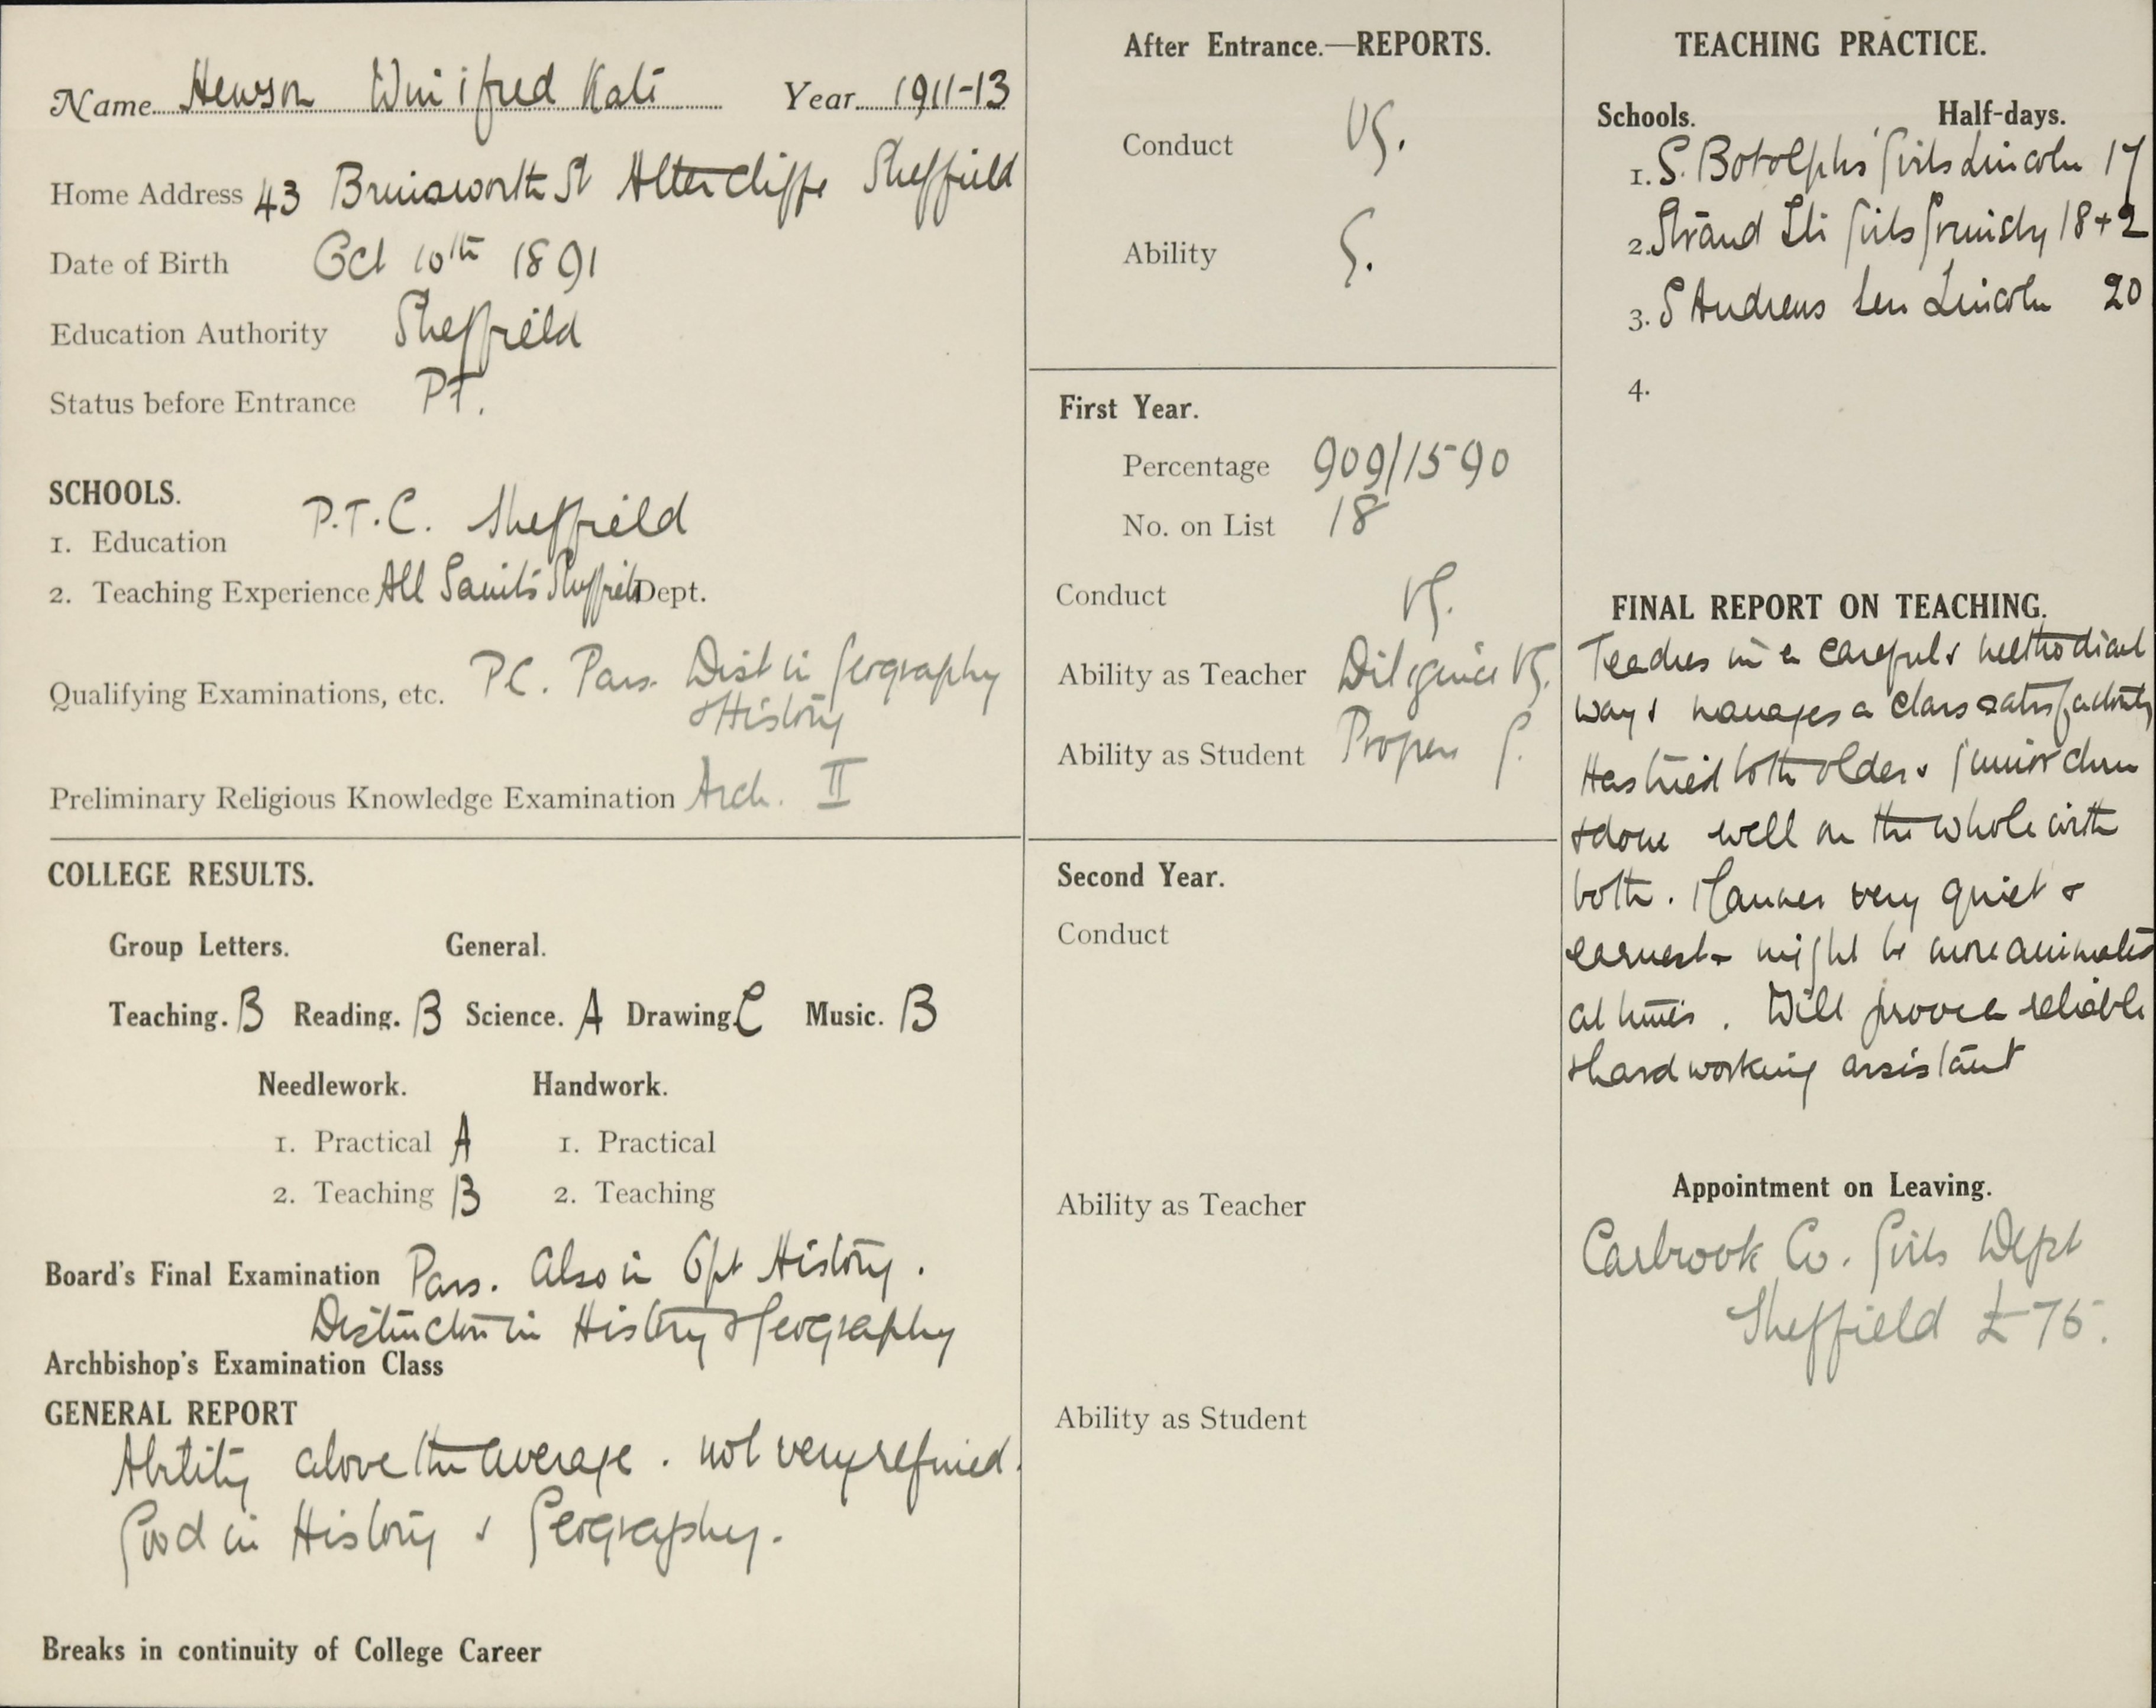 Name Hewson Winifred Kate Year 1911-13
Home Address 43 Brinsworth St Attercliffe Sheffield
Date of Birth Oct 10th 1891
Education Authority Sheffield
Status before Entrance P.T.
SCHOOLS.
1. Education P.T.C. Sheffield
2. Teaching Experience All Saints Sheffield Dept.
Qualifying Examinations, etc. P.C. Pass. Dist in Geography
& History
Preliminary Religious Knowledge Examination Arch. II
COLLEGE RESULTS.
Group Letters. General.
Teaching. B Reading. B Science. A Drawing. C Music. B
Needlework. Handwork.
1. Practical A 1. Practical
2. Teaching B 2. Teaching
Board's Final Examination Pass. Also in Opt History.
Distinction in History & Geography
Archbishop's Examination Class
GENERAL REPORT
Ability above the average. not very refined.
Good in History & Geography.
Breaks in continuity of College Career
After Entrance.—REPORTS.
Conduct VG.
Ability G.
First Year.
Percentage 909/1590
No. on List 18
Conduct VG.
Ability as Teacher Diligence VG.
Ability as Student Progress G.
Second Year.
Conduct
Ability as Teacher
Ability as Student
TEACHING PRACTICE.
Schools. Half-days.
1. S. Botolphs' Girls Lincoln 17
2. Strand St Girls Grimsby 18+2
3. S Andrews Lincoln 20
4.
FINAL REPORT ON TEACHING.
Teaches in a careful & methodical
way & manages a class satisfactorily
Has tried both older & junior chn
& done well on the whole with
both. Manner very quiet &
earnest - might be more animated
at times. Will prove a reliable
& hardworking assistant
Appointment on Leaving.
Carbrook Co. Girls Dept
Sheffield £75.